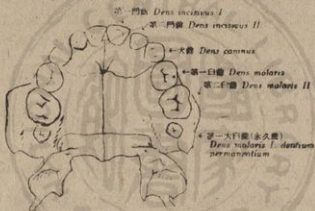 第一門齒 Dens incisivus I
第二門齒 Dens incisivus II
犬齒 Dens caninus
第一臼齒 Dens molaris
第二臼齒 Dens molaris II
第一大臼齒(永久齒)
Dens molaris I dentium
permanentium